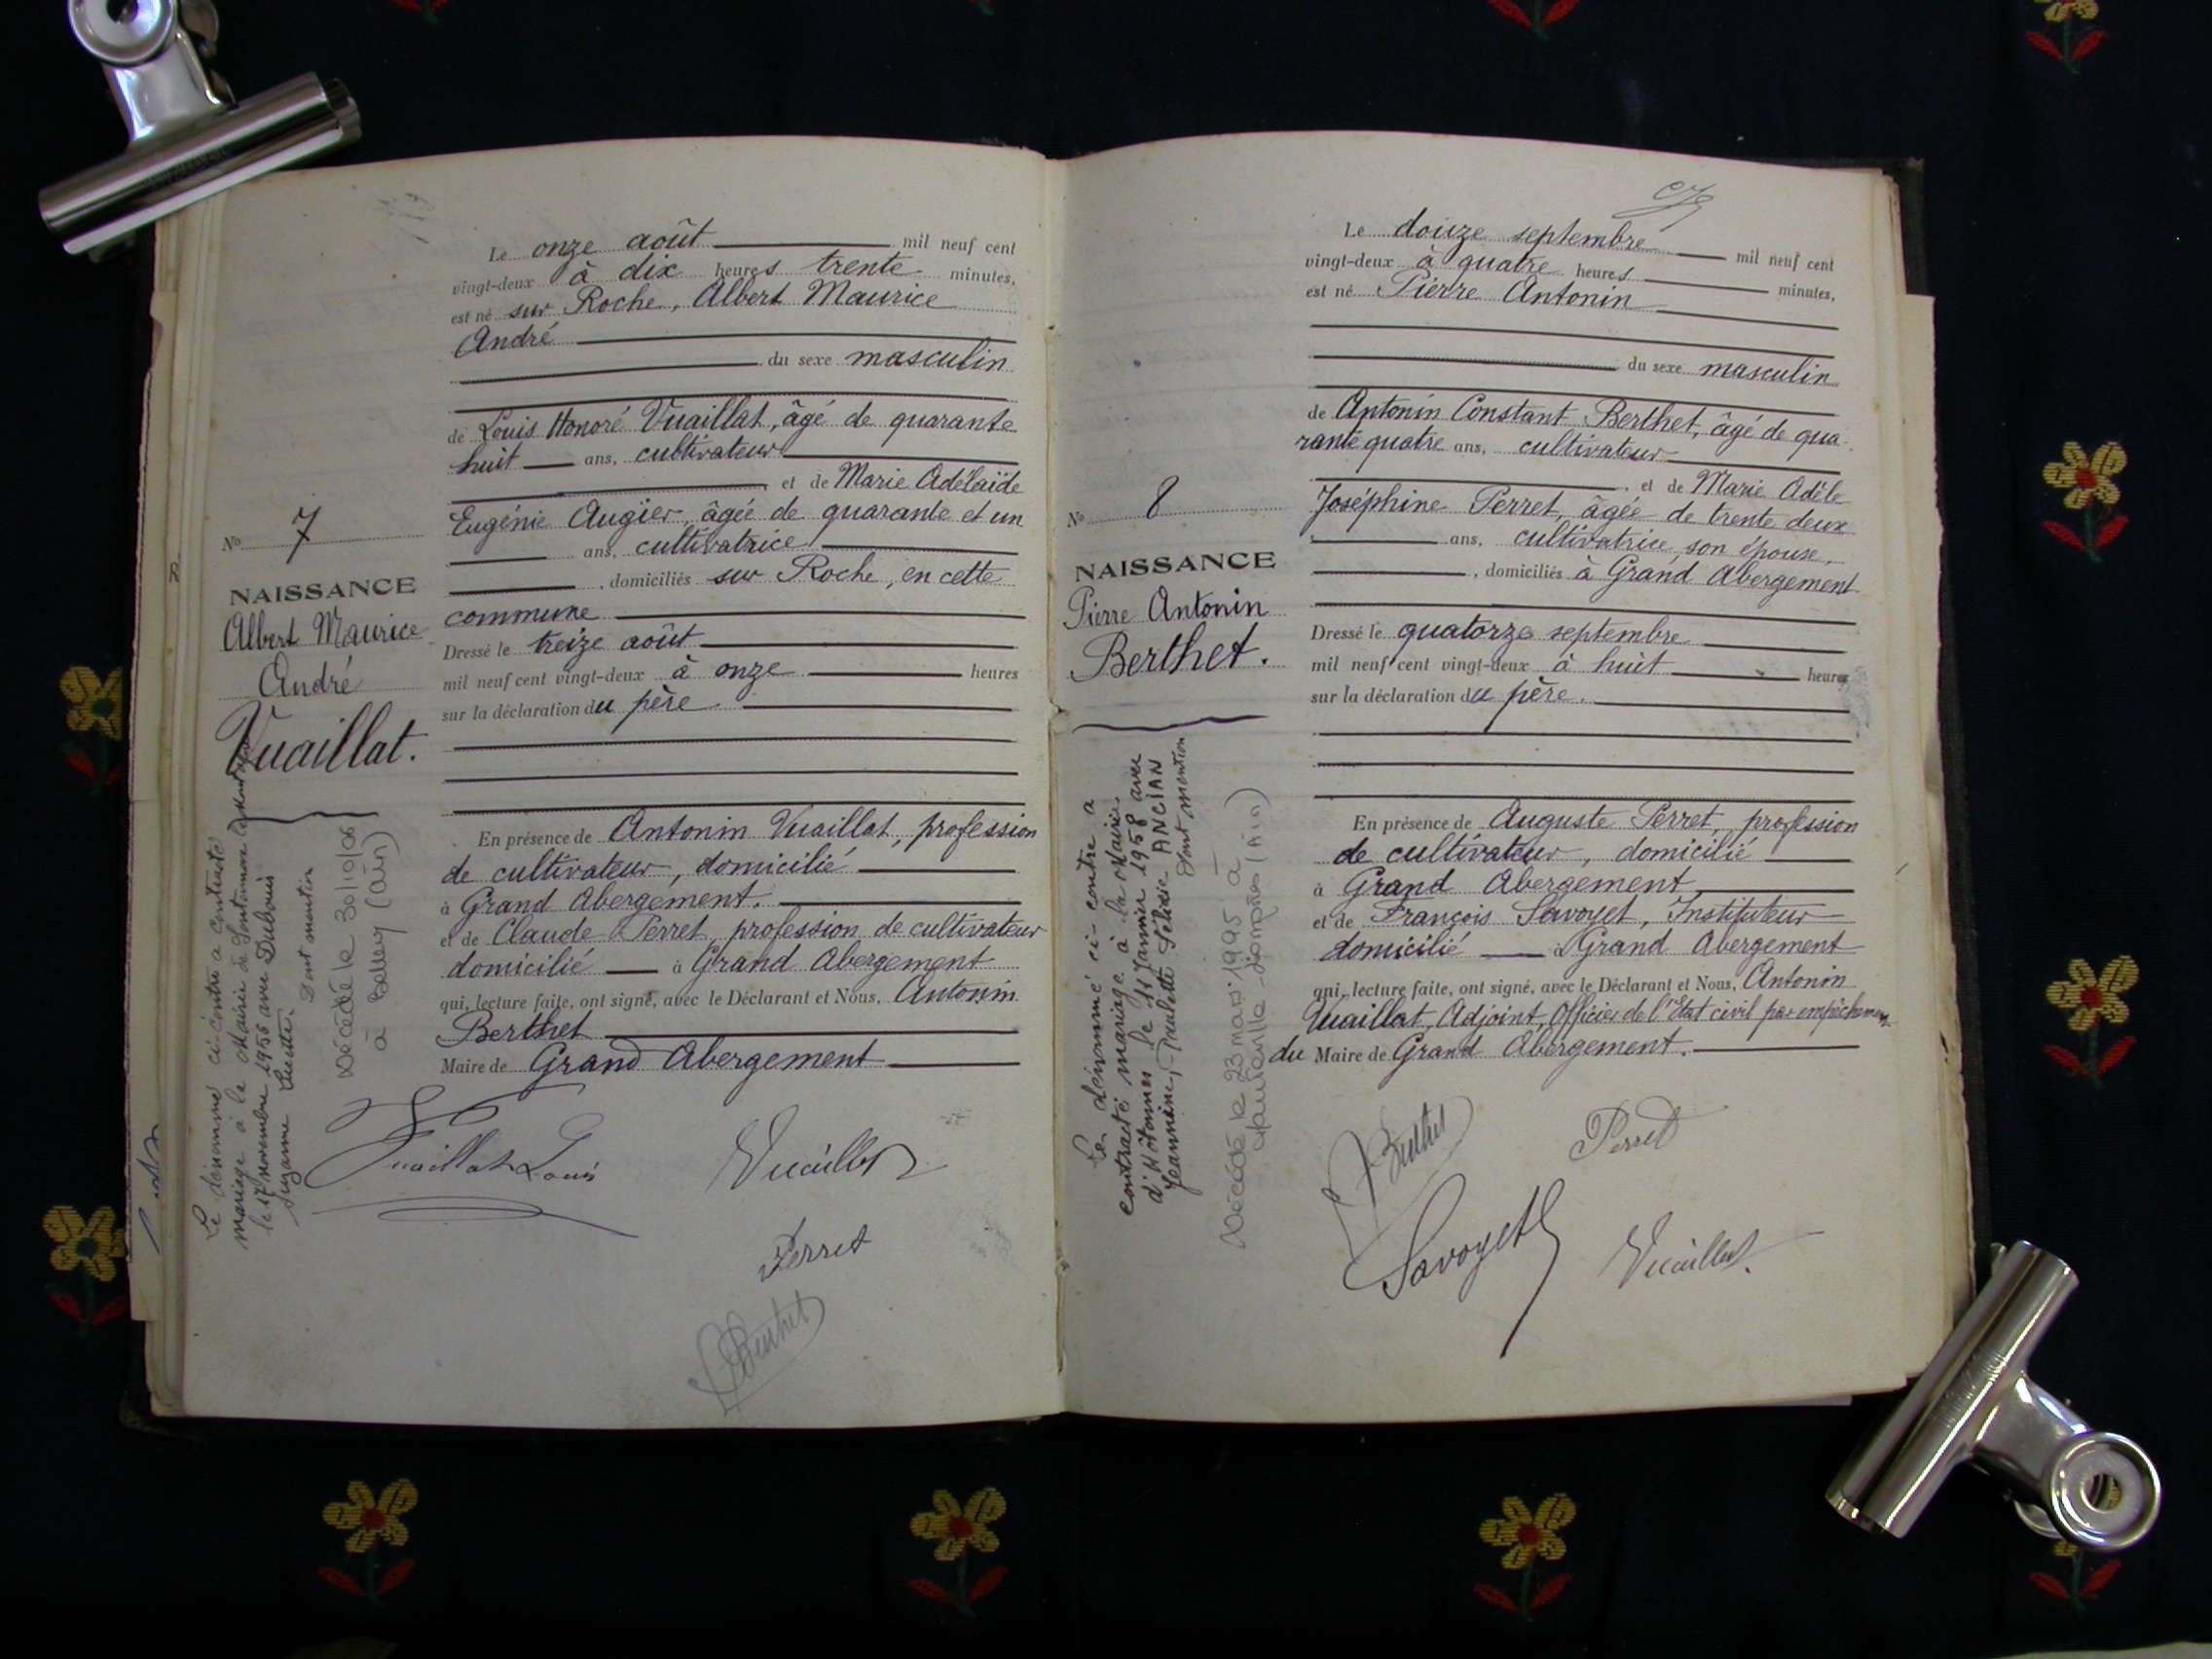 Le onze août mil neuf cent
vingt-deux à dix heures trente minutes,
est né sur Roche, Albert Maurice
André
du sexe masculin
de Louis Honoré Vuaillat, âgé de quarante
huit ans, cultivateur
et de Marie Adélaïde
Eugénie Augier, âgée de quarante et un
ans, cultivatrice
, domiciliés sur Roche, en cette
commune
Dressé le treize août
mil neuf cent vingt-deux à onze heures
sur la déclaration du père
En présence de Antonin Vuaillat, profession
de cultivateur, domicilié
à Grand Abergement.
et de Claude Perret, profession de cultivateur
domicilié à Grand Abergement
qui, lecture faite, ont signé, avec le Déclarant et Nous, Antonin
Berthet
Maire de Grand Abergement
No 7
NAISSANCE
Albert Maurice
André
Vuaillat.
Le dénommé ci-contre a contracté
mariage à la Mairie de
le 17 novembre 1956 avec Dubouis
Suzanne Lucette.
Dont mention
Décédé le 30/10/06
à Belley (Ain)
Vuaillat Louis
Vuaillat
Perret
Berthet
Le douze septembre mil neuf cent
vingt-deux à quatre heures minutes,
est né Pierre Antonin
du sexe masculin
de Antonin Constant Berthet, âgé de qua
rante quatre ans, cultivateur
et de Marie Adèle
Joséphine Perret, âgée de trente deux
ans, cultivatrice, son épouse,
, domiciliés à Grand Abergement
Dressé le quatorze septembre
mil neuf cent vingt-deux à huit heures
sur la déclaration du père.
En présence de Auguste Perret, profession
de cultivateur, domicilié
à Grand Abergement
et de François Savoyet, Instituteur
domicilié à Grand Abergement
qui, lecture faite, ont signé, avec le Déclarant et Nous, Antonin
Vuaillat, Adjoint, Officier de l'Etat civil par empêchement
du Maire de Grand Abergement.
No 8
NAISSANCE
Pierre Antonin
Berthet.
Le dénommé ci-contre a
contracté mariage à la Mairie
d'Hotonnes le 11 Janvier 1958 avec
Jeannine, Paulette Félixie ANCIAN
Dont mention
Décédé le 23 mars 1995 à
Hauteville-Lompnes (Ain)
Berthet
Perret
Savoyet
Vuaillat